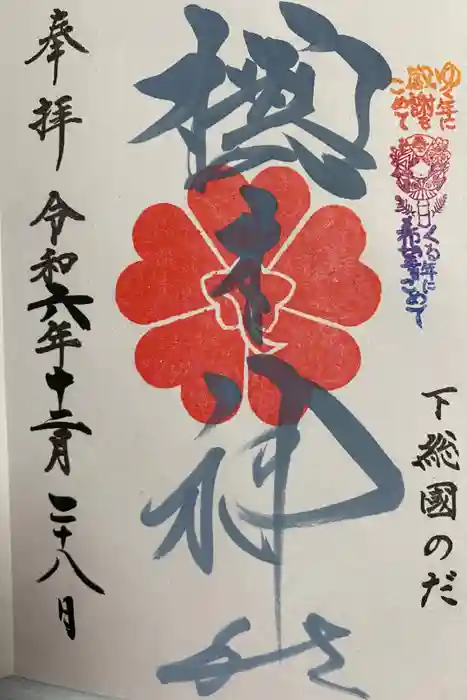 ゆく年に
感謝を
こめて
くる年に
希望こめて
下総國のだ
櫻木神社
奉拝 令和六年十二月二十八日